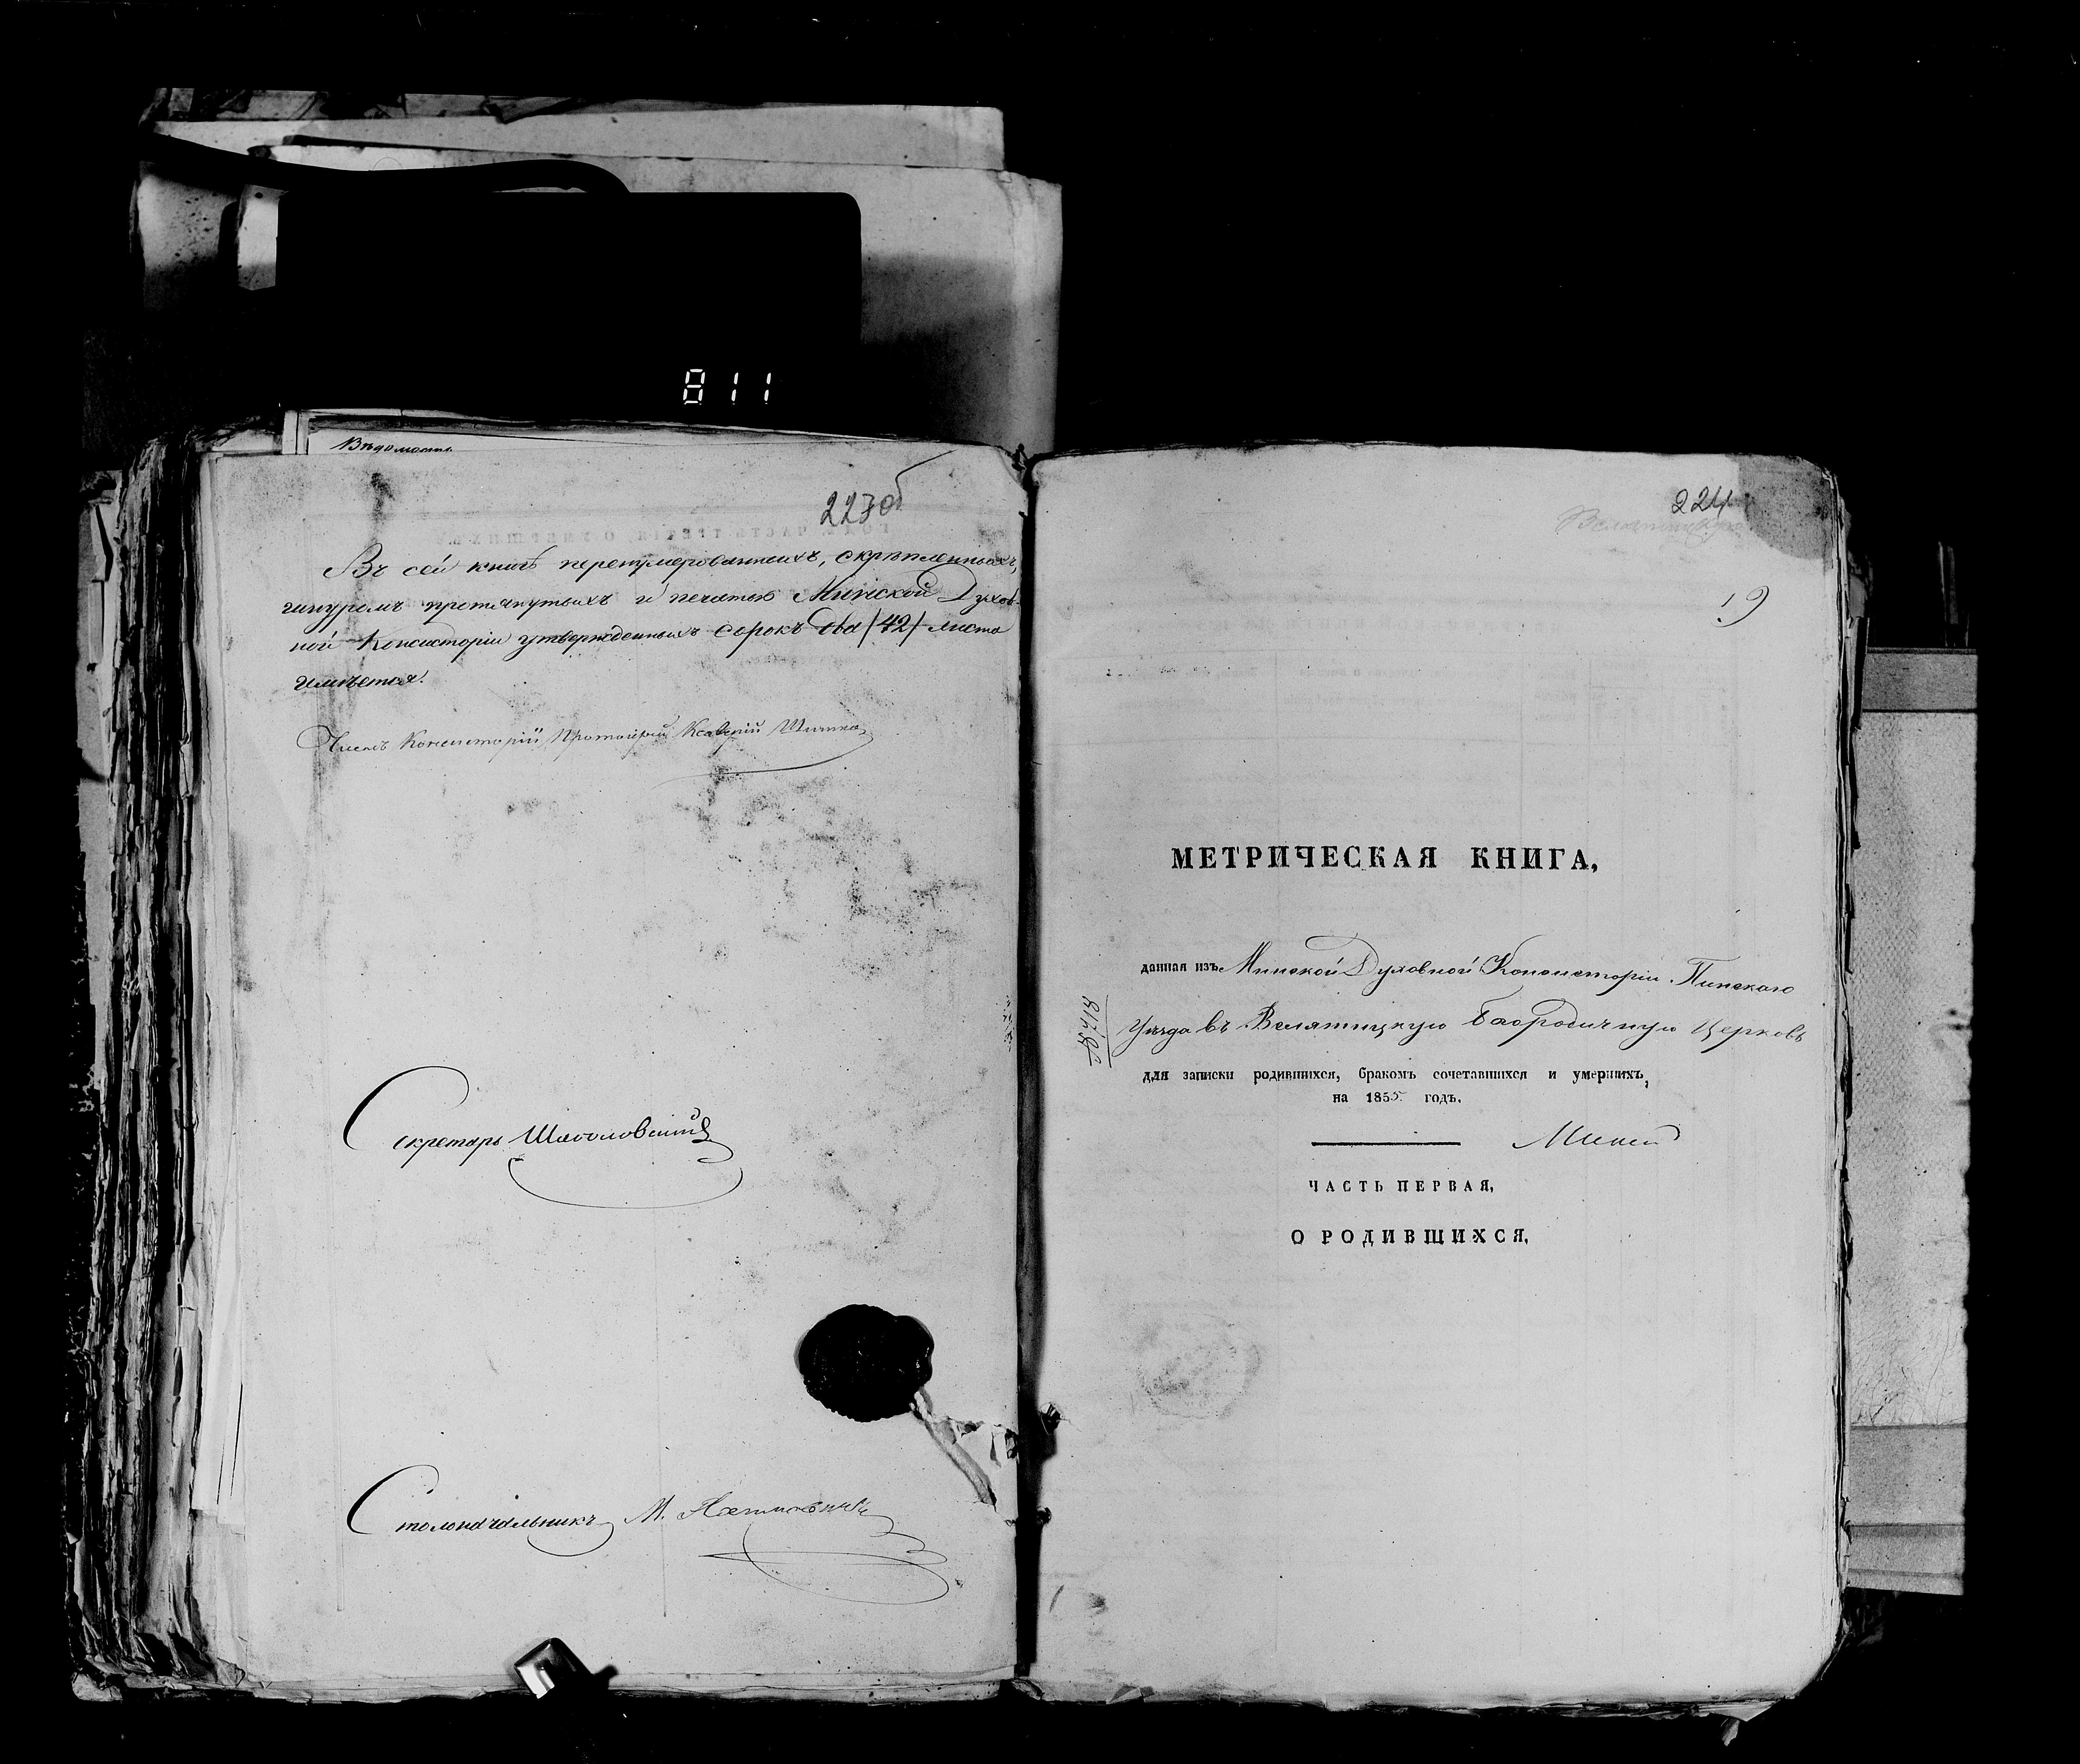 811
Вѣдомость
223об
Въ сей книгѣ перенумерованныхъ, скрѣпленныхъ,
шнуромъ протянутыхъ и печатью Минской Духов-
ной Консисторіи утвержденныхъ сорокъ два /42/ листа
имѣется.
Членъ Консисторіи Протоіерей
Секретарь
Столоначальникъ М.
224
19
МЕТРИЧЕСКАЯ КНИГА,
данная изъ Минской Духовной Консисторіи Пинскаго
Уѣзда въ Велятицкую Богородичную Церковь
№ 718
для записки родившихся, бракомъ сочетавшихся и умершихъ,
на 1855 годъ.
ЧАСТЬ ПЕРВАЯ,
О РОДИВШИХСЯ,